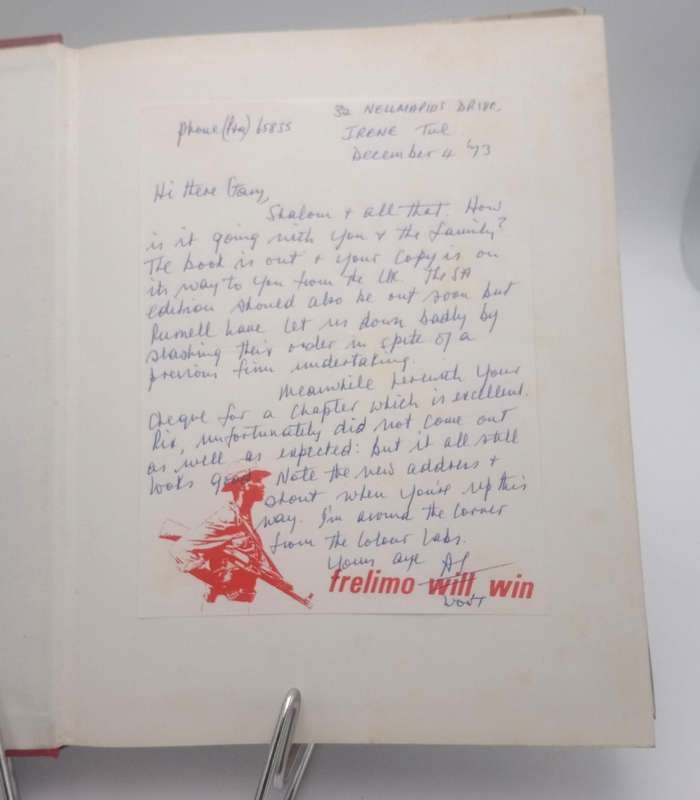 32 NELLMAPIUS DRIVE,
phone (Pta) 65855
IRENE Tvl
December 4 '73
Hi there Gary,
Shalom + all that. How
is it going with you + the family?
The book is out + your copy is on
its way to you from the UK. The SA
edition should also be out soon but
Purnell have let us down badly by
slashing their order in spite of a
previous firm undertaking.
Meanwhile herewith your
cheque for a chapter which is excellent.
Pix, unfortunately did not come out
as well as expected: but it all still
looks good. Note the new address +
shout when you're up this
way. I'm around the corner
from the Colour Labs.
Yours aye Al
frelimo will win